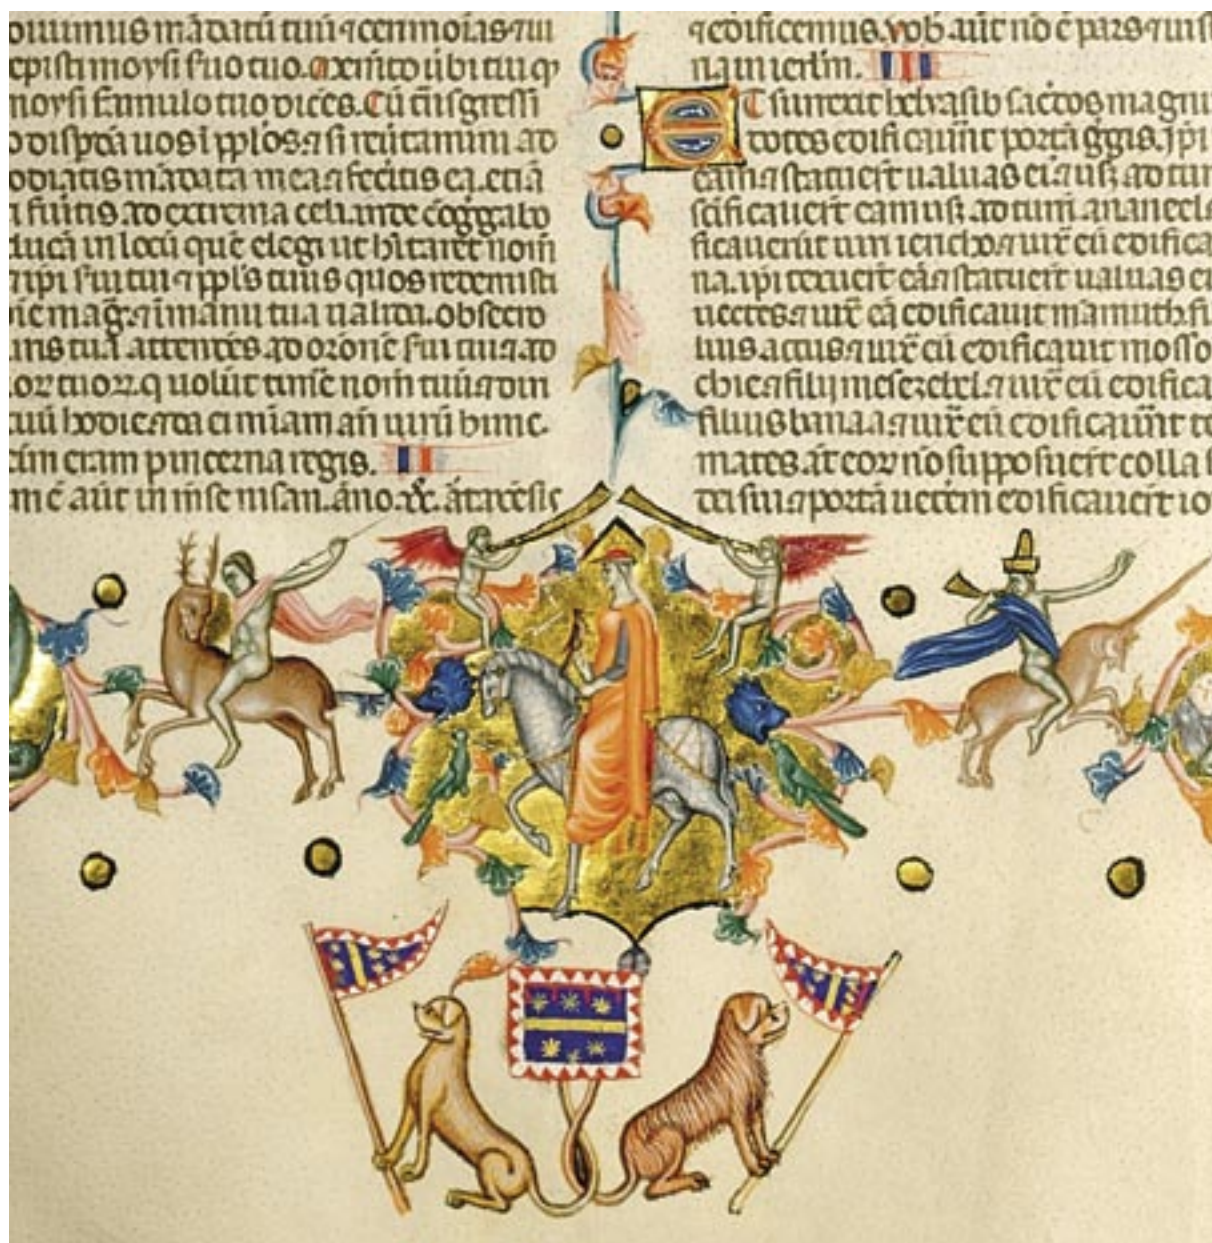 mādatū tuū ⁊ cerimoīas ⁊ iu
moysi s̄uo tuo. ūbi tui q̄
moysi famulo tuo dicēs. Cū tn̄sgressi
dispgā uos ī pplos. ⁊ si reūtamini ad
mādata mea ⁊ fecitis ea. etiā
fūitis ad extrema celi. inde cōggabo
ducā in locū quē elegi ut hītaret nom̄
⁊ ipi s̄ui tui ⁊ ppls tuus quos redemisti
mag̃. ⁊ ī manu tua ualida. obsecro
tua attendēs ad orōnē s̄ui tui ⁊ ad
tuoꝝ. q uolūt timē nom̄ tuū ⁊ diri
tuū hodie ⁊ da ei miam an̄ uirū hunc.
eram pincerna regis. II
ē aūt in mēse nisan. āno xx.
⁊ edificemus. uob aūt nō ē pars ⁊ ius
na in ierl̄m. III
ET surrexit heliasib sac̄dos magnu
dotes edificauūt portā gḡis. ipi
eam ⁊ statuerūt ualuas ei ⁊ usq̄ ad tur
sc̄ificauerūt eam usq̄ ad turrī ananeel
ficauerūt uiri iericho. ⁊ iux̄ eū edifica
na. ipi texuerūt eā ⁊ statuerūt ualuas ei
uectes. ⁊ iux̄ eā edificauit fi
lius accus ⁊ iux̄ eū edificauit mosso
chie ⁊ filii mesezebel. ⁊ iux̄ eū edifica
filius baana. ⁊ iux̄ eū edificauūt te
mates āt eoꝝ nō supposuerūt colla s
dei sui ⁊ portā ueterem edificauerūt io